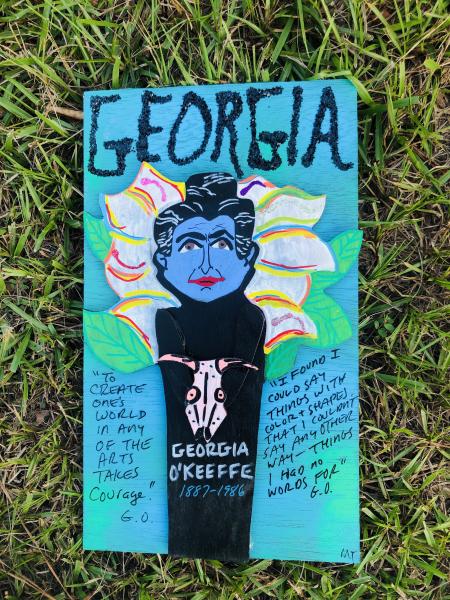 GEORGIA
"TO
CREATE
ONE'S
WORLD
IN ANY
OF THE
ARTS
TAKES
Courage."
G.O.
GEORGIA
O'KEEFFE
1887-1986
"I FOUND I
COULD SAY
THINGS WITH
COLOR + SHAPES
THAT I COULDN'T
SAY ANY OTHER
WAY— THINGS
I HAD NO
WORDS FOR"
G.O.
MT